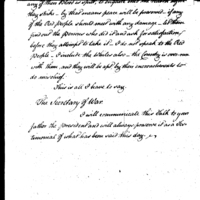 any of their blood is spilt, to
they strike - by this means peace will be preserved. if any
of the Red people should meet with any damage - let them
find out the Persons who did it and ask for satisfaction
before they attempt to take it - I do not speak to the Red
people - Consider the Whites also - the Country is over run
with them, and they will be apt by their encroachments to
do mischief.
This is all I have to say.
The Secretary of War
I will communicate this Talk to your
father the President and will always preserve it as a Tes-
timonial of what has been said this day